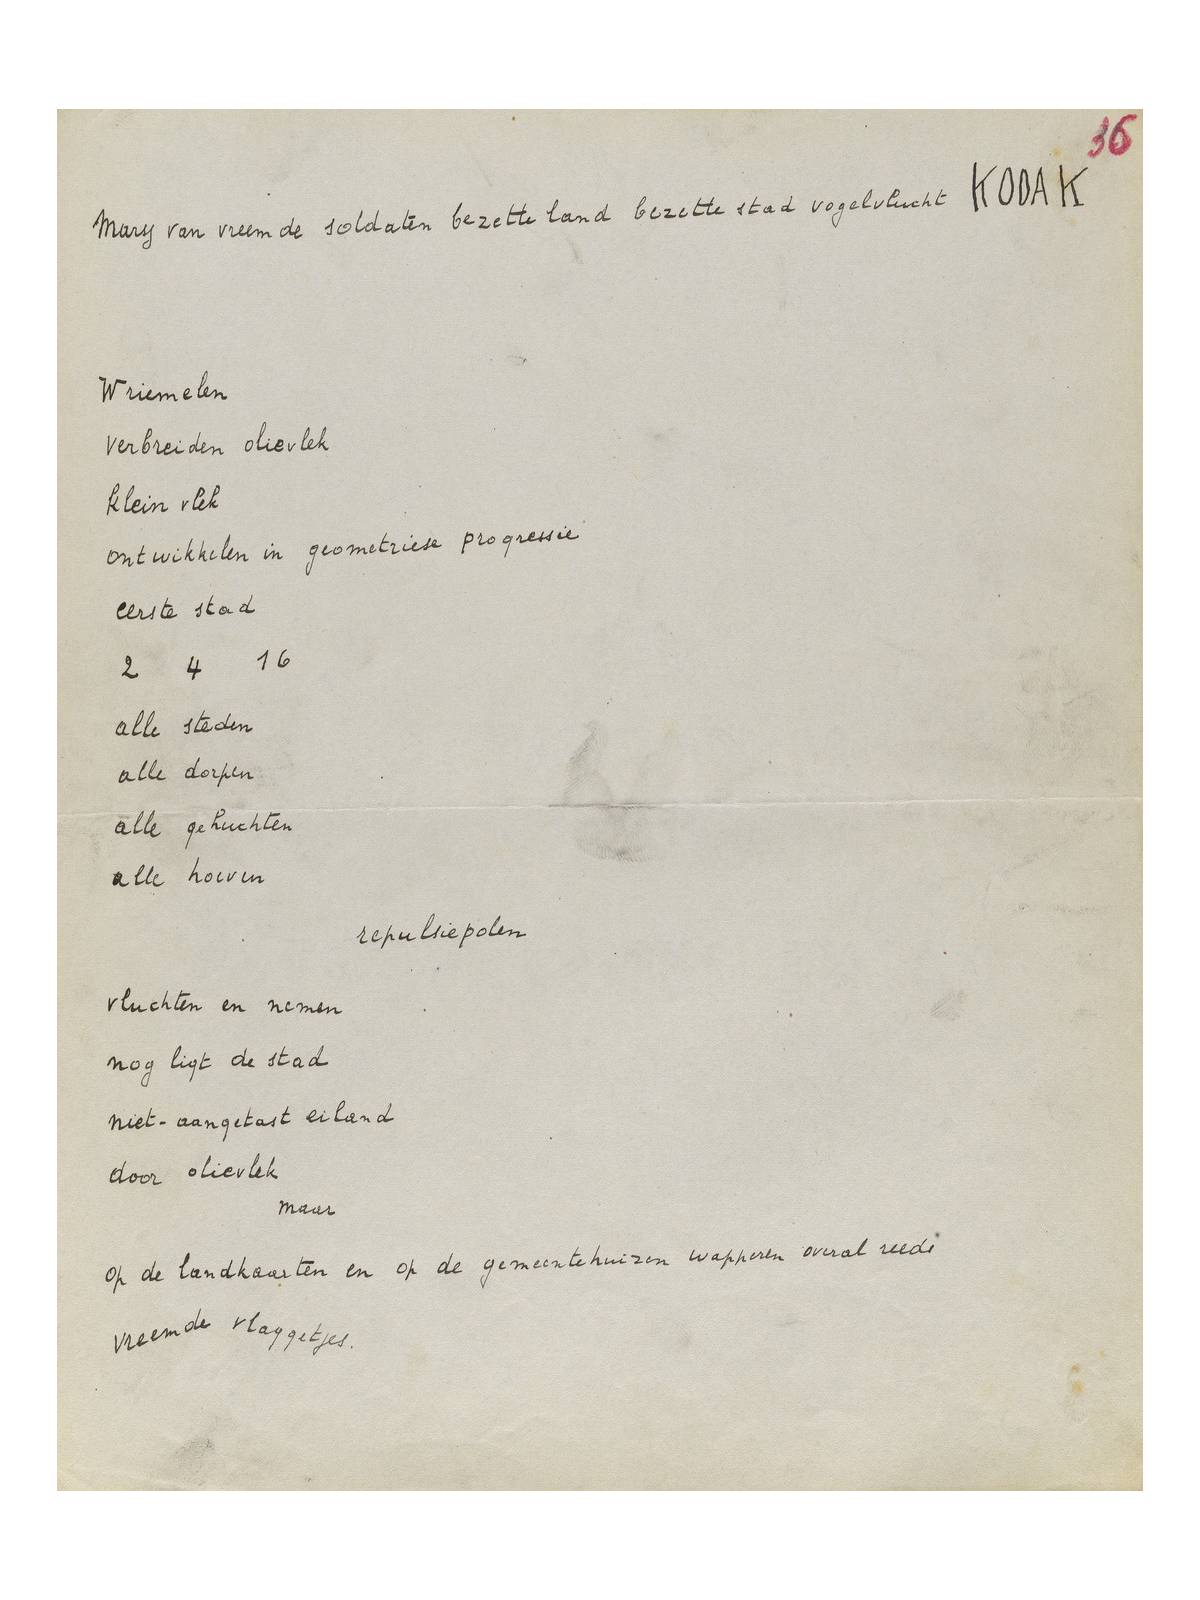 36
Mars van vreemde soldaten bezette land bezette stad vogelvlucht KODAK
Wriemelen
verbreiden olievlek
klein vlek
ontwikkelen in geometriese progressie
eerste stad
2 4 16
alle steden
alle dorpen
alle gehuchten
alle hoeven
repulsiepolen
vluchten en nemen
nog ligt de stad
niet-aangetast eiland
door olievlek
maar
op de landkaarten en op de gemeentehuizen wapperen overal reeds
vreemde vlaggetjes.